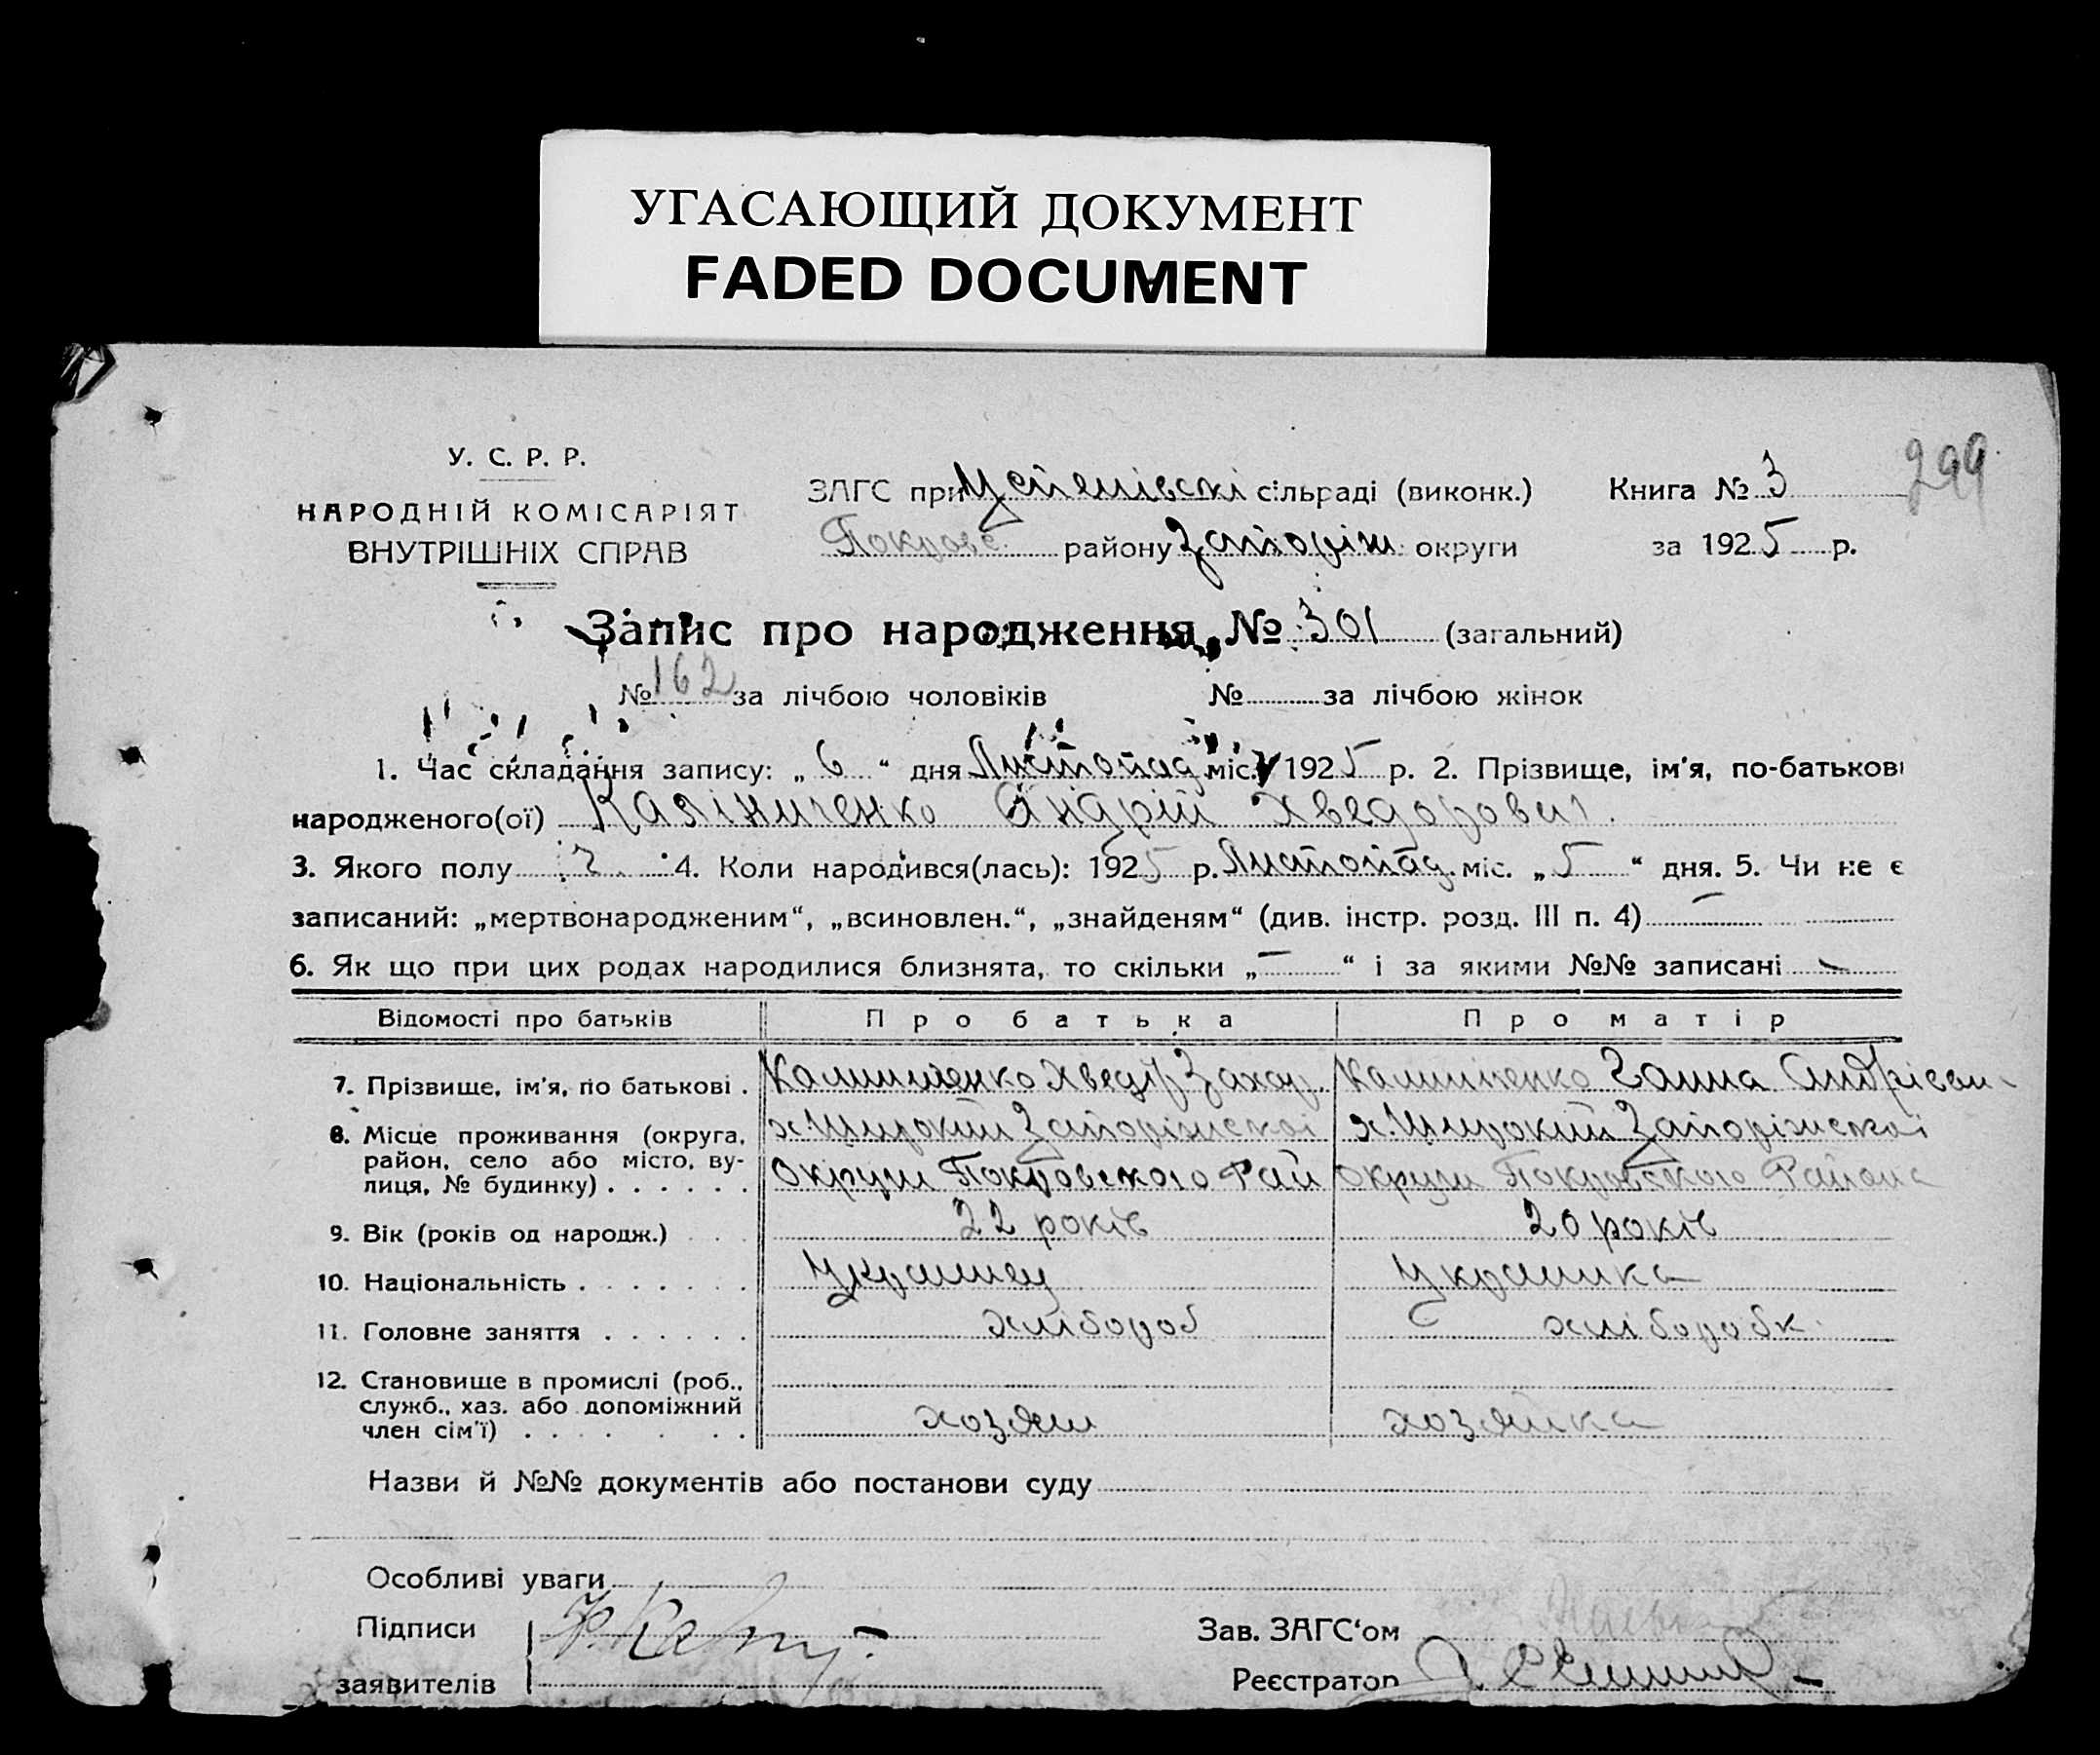 УГАСАЮЩИЙ ДОКУМЕНТ
FADED DOCUMENT
299
У. С. Р. Р.
НАРОДНІЙ КОМІСАРІЯТ
ВНУТРІШНІХ СПРАВ
ЗАГС при Успенівскі сільраді (виконк.)
Покровс. району Запоріж. округи
Книга № 3
за 1925 р.
Запис про народження № 301 (загальний)
№ 162 за лічбою чоловіків № за лічбою жінок
1. Час складання запису: „ 6 “ дня Листопад міс. 1925 р. 2. Прізвище, ім'я, по-батькові
народженого(ої) Калініченко Андрій Хведорович.
3. Якого полу ч. 4. Коли народився(лась): 1925 р. Листопад. міс. „ 5 “ дня. 5. Чи не є
записаний: „мертвонародженим“, „всиновлен.“, „знайденям“ (див. інстр. розд. III п. 4) —
6. Як що при цих родах народилися близнята, то скільки „ — “ і за якими №№ записані —
Відомості про батьків Про батька Про матір
7. Прізвище, ім'я, по батькові . Калиниченко Хведір Захар. Калиниченко Ганна Андрієвн
8. Місце проживання (округа, х. Широкий Запоріжскої х. Широкий Запоріжскої
район, село або місто, ву-
лиця, № будинку) . . . . . . Округи Покровского Рай Округи Покровского Района
9. Вік (років од народж.) . . . 22 років 20 років
10. Національність . . . . . . . Украинец Украинка
11. Головне заняття . . . . . . хлібороб хліборобк.
12. Становище в промислі (роб.,
служб., хаз. або допоміжний хозяин хозяйка
член сім'ї) . . . . . . .
Назви й №№ документів або постанови суду
Особливі уваги
Підписи
заявителів
Зав. ЗАГС‘ом
Реєстратор